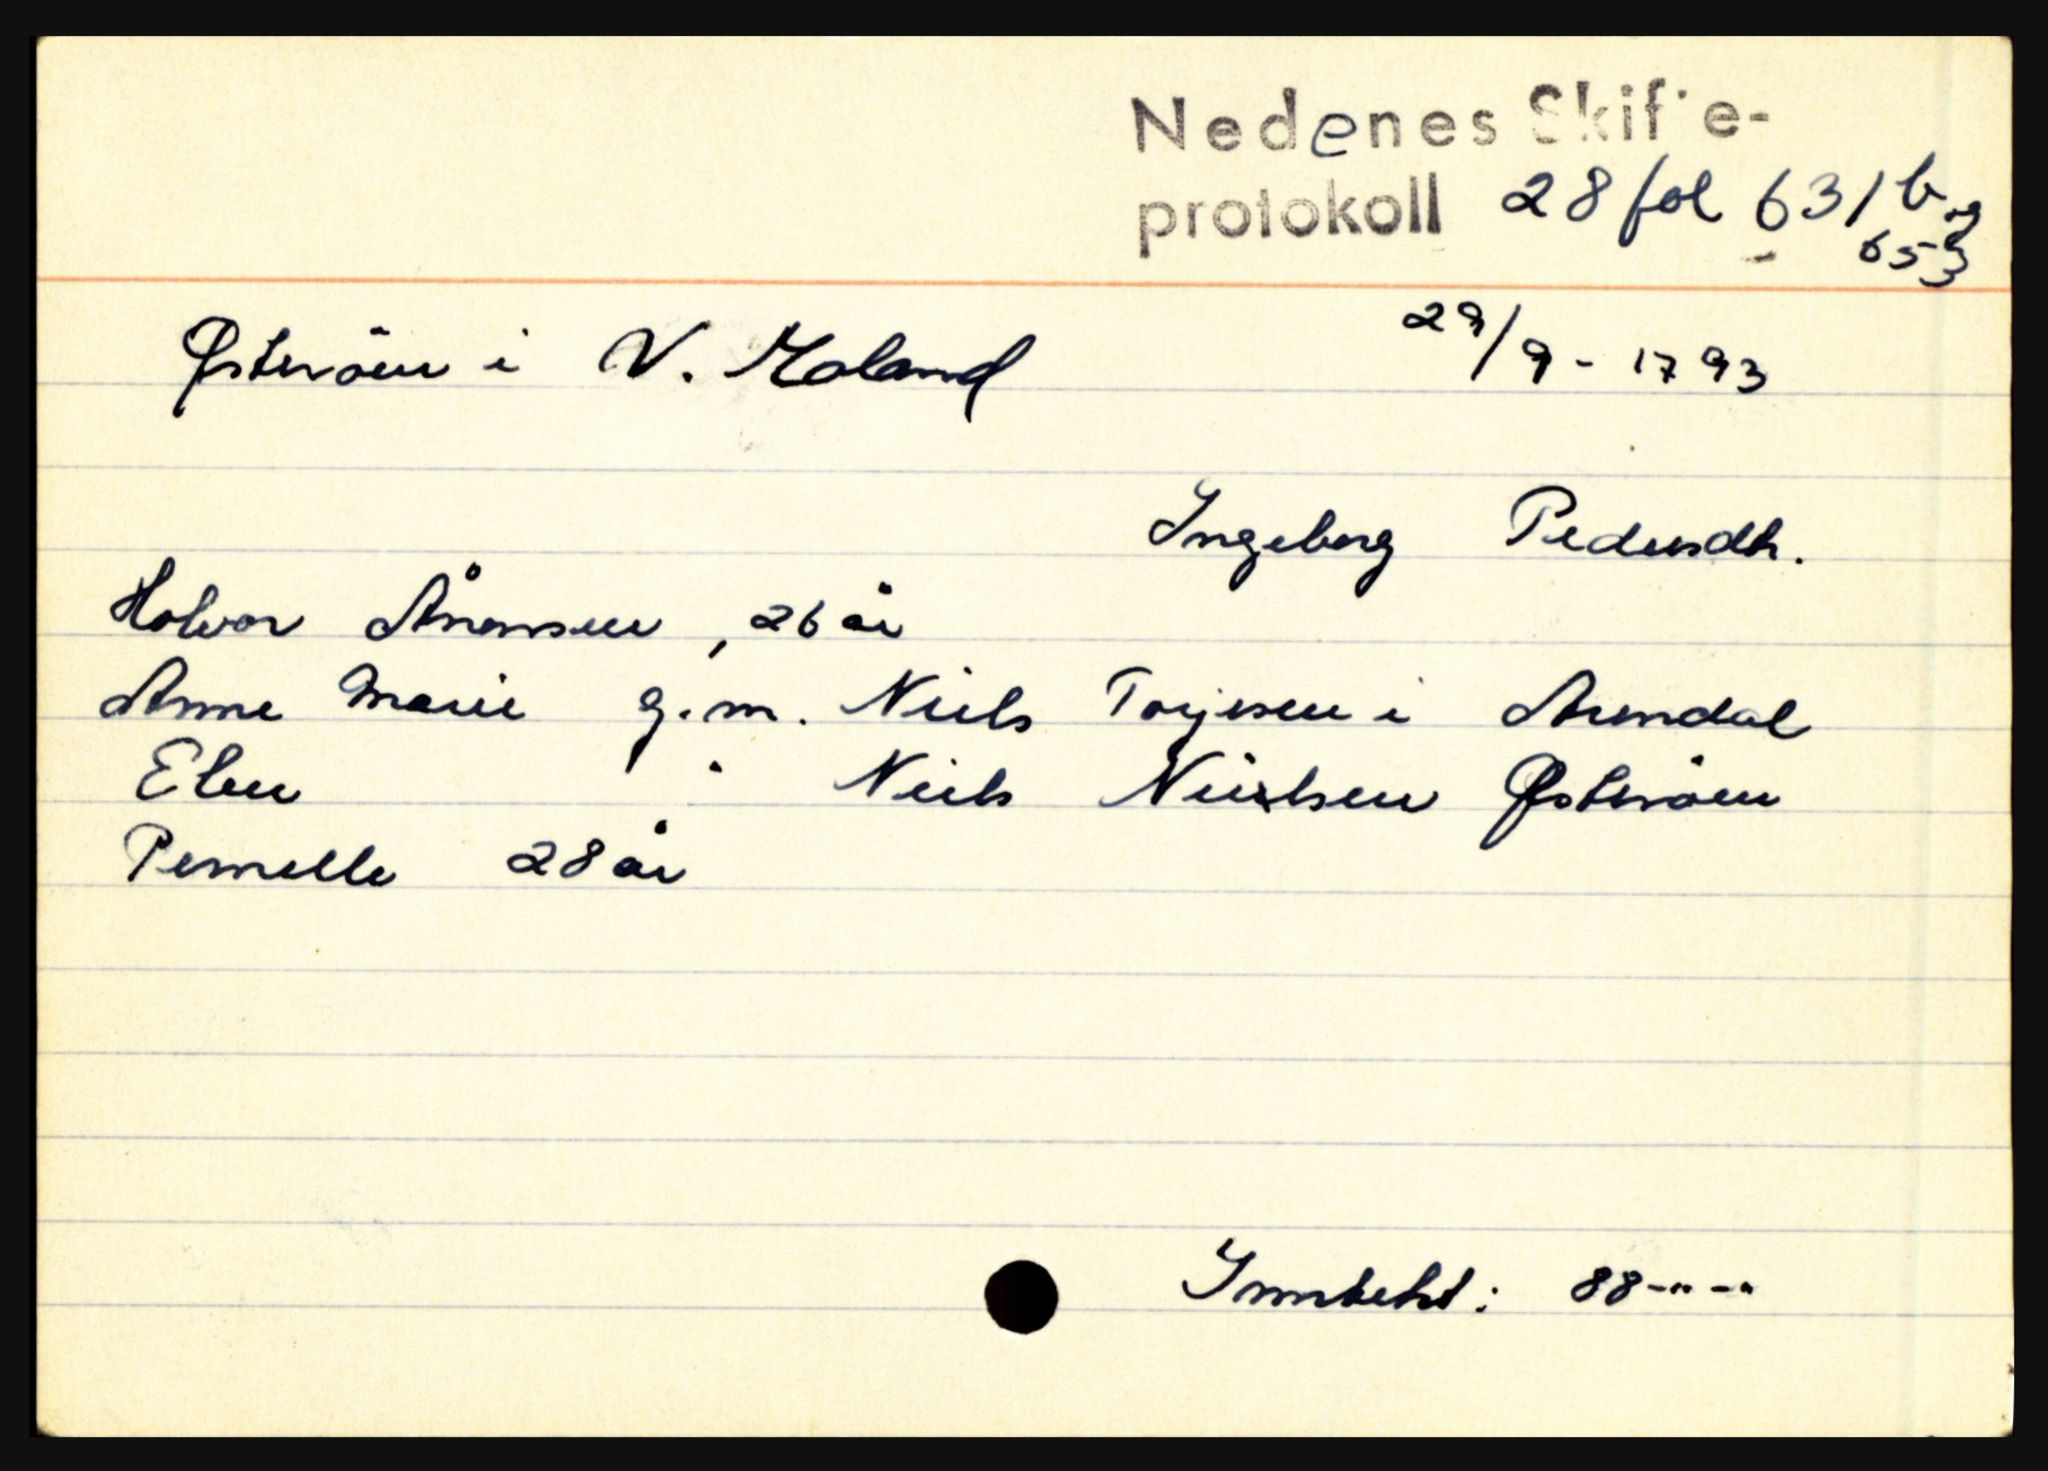 Nedenes Skifte-
protokoll 28 fol 631 b og
653
Østeröen i V. Moland 29/9-1793
Ingeborg Pedersdtr.
Halvor Ånonsen, 26 år
Anne Marie g.m. Niels Torjesen i Arendal
Elen " Niels Nielsen Østeröen
Pernelle 28 år
88-"-"